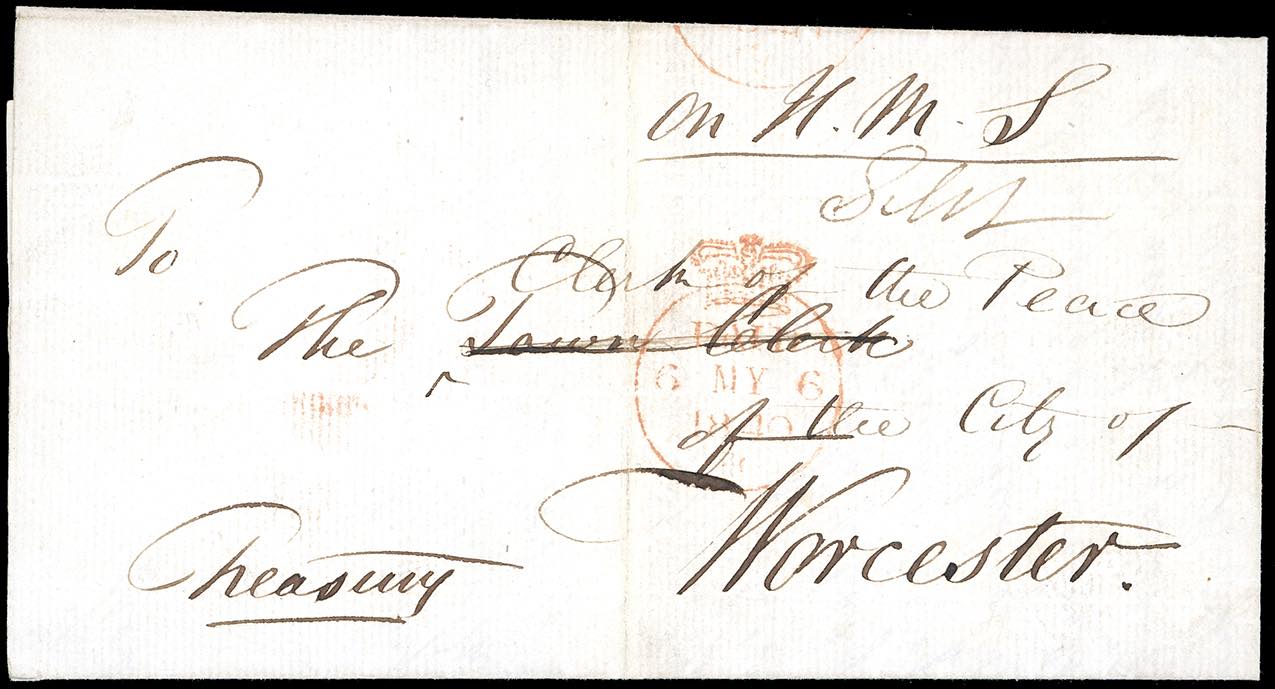 on H. M. S
To
Clerk of the Peace
The Town Clerk
PAID
6 MY 6
1840
of the City of
Worcester.
Treasury